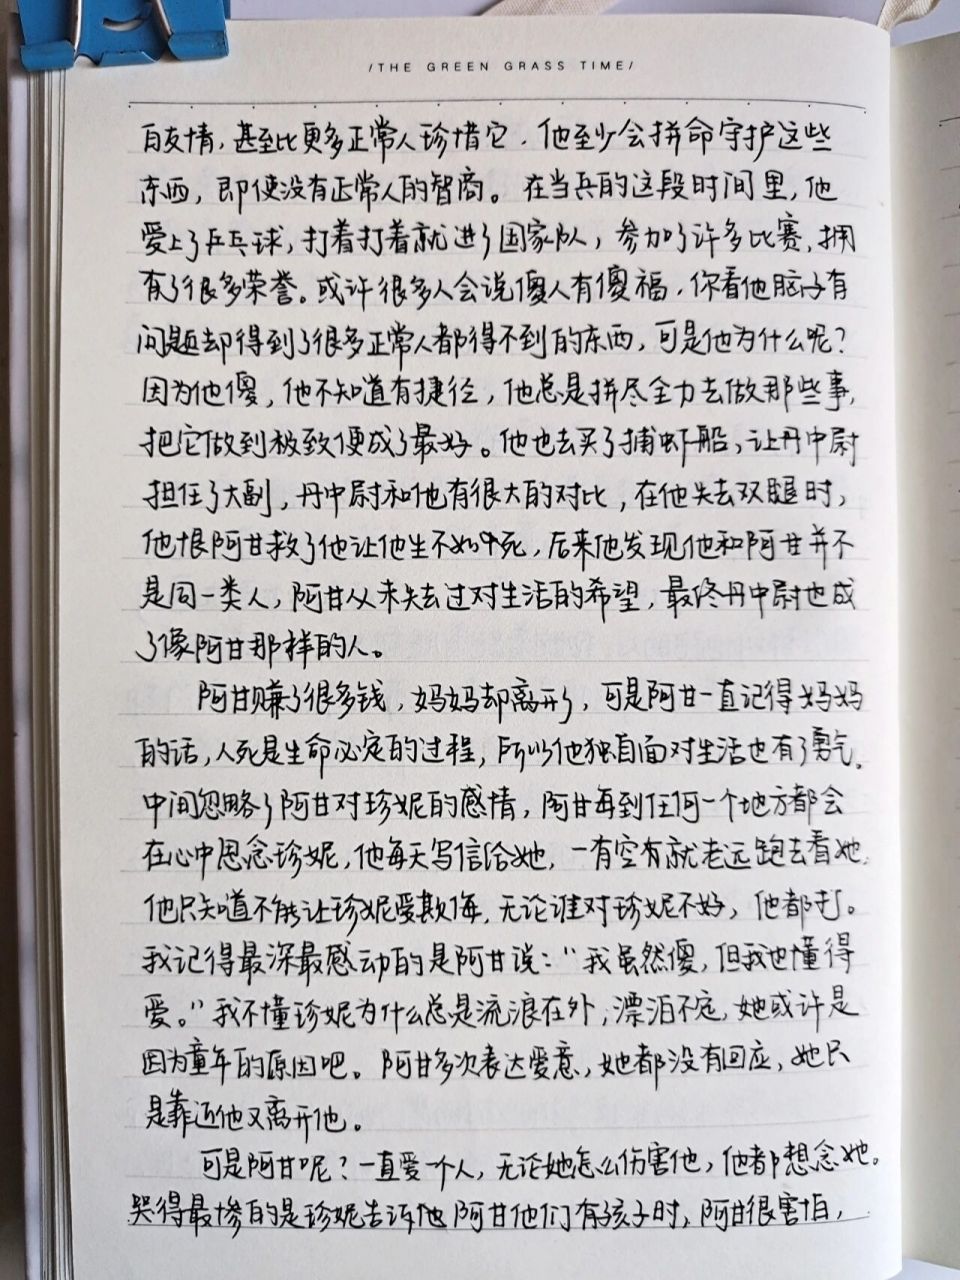 /THE GREEN GRASS TIME/
白友情，甚至比更多正常人珍惜它，他至少会拼命守护这些
东西，即使没有正常人的智商。在当兵的这段时间里，他
爱上了乒乓球，打着打着就进了国家队，参加了许多比赛，拥
有了很多荣誉。或许很多人会说傻人有傻福，你看他脑子有
问题却得到了很多正常人都得不到的东西，可是他为什么呢？
因为他傻，他不知道有捷径，他总是拼尽全力去做那些事，
把它做到极致便成了最好。他也去买了捕虾船，让丹中尉
担任了大副，丹中尉和他有很大的对比，在他失去双腿时，
他恨阿甘救了他让他生不如死，后来他发现他和阿甘并不
是同一类人，阿甘从未失去过对生活的希望，最终丹中尉也成
了像阿甘那样的人。
阿甘赚了很多钱，妈妈却离开了，可是阿甘一直记得妈妈
的话，人死是生命必定的过程，所以他独自面对生活也有了勇气。
中间忽略了阿甘对珍妮的感情，阿甘每到任何一个地方都会
在心中思念珍妮，他每天写信给她，一有空有就老远跑去看她，
他只知道不能让珍妮受欺侮，无论谁对珍妮不好，他都打。
我记得最深最感动的是阿甘说：“我虽然傻，但我也懂得
爱。”我不懂珍妮为什么总是流浪在外，漂泊不定，她或许是
因为童年的原因吧。阿甘多次表达爱意，她都没有回应，她只
是靠近他又离开他。
可是阿甘呢？一直爱一个人，无论她怎么伤害他，他都想念她。
哭得最惨的是珍妮告诉他阿甘他们有孩子时，阿甘很害怕，